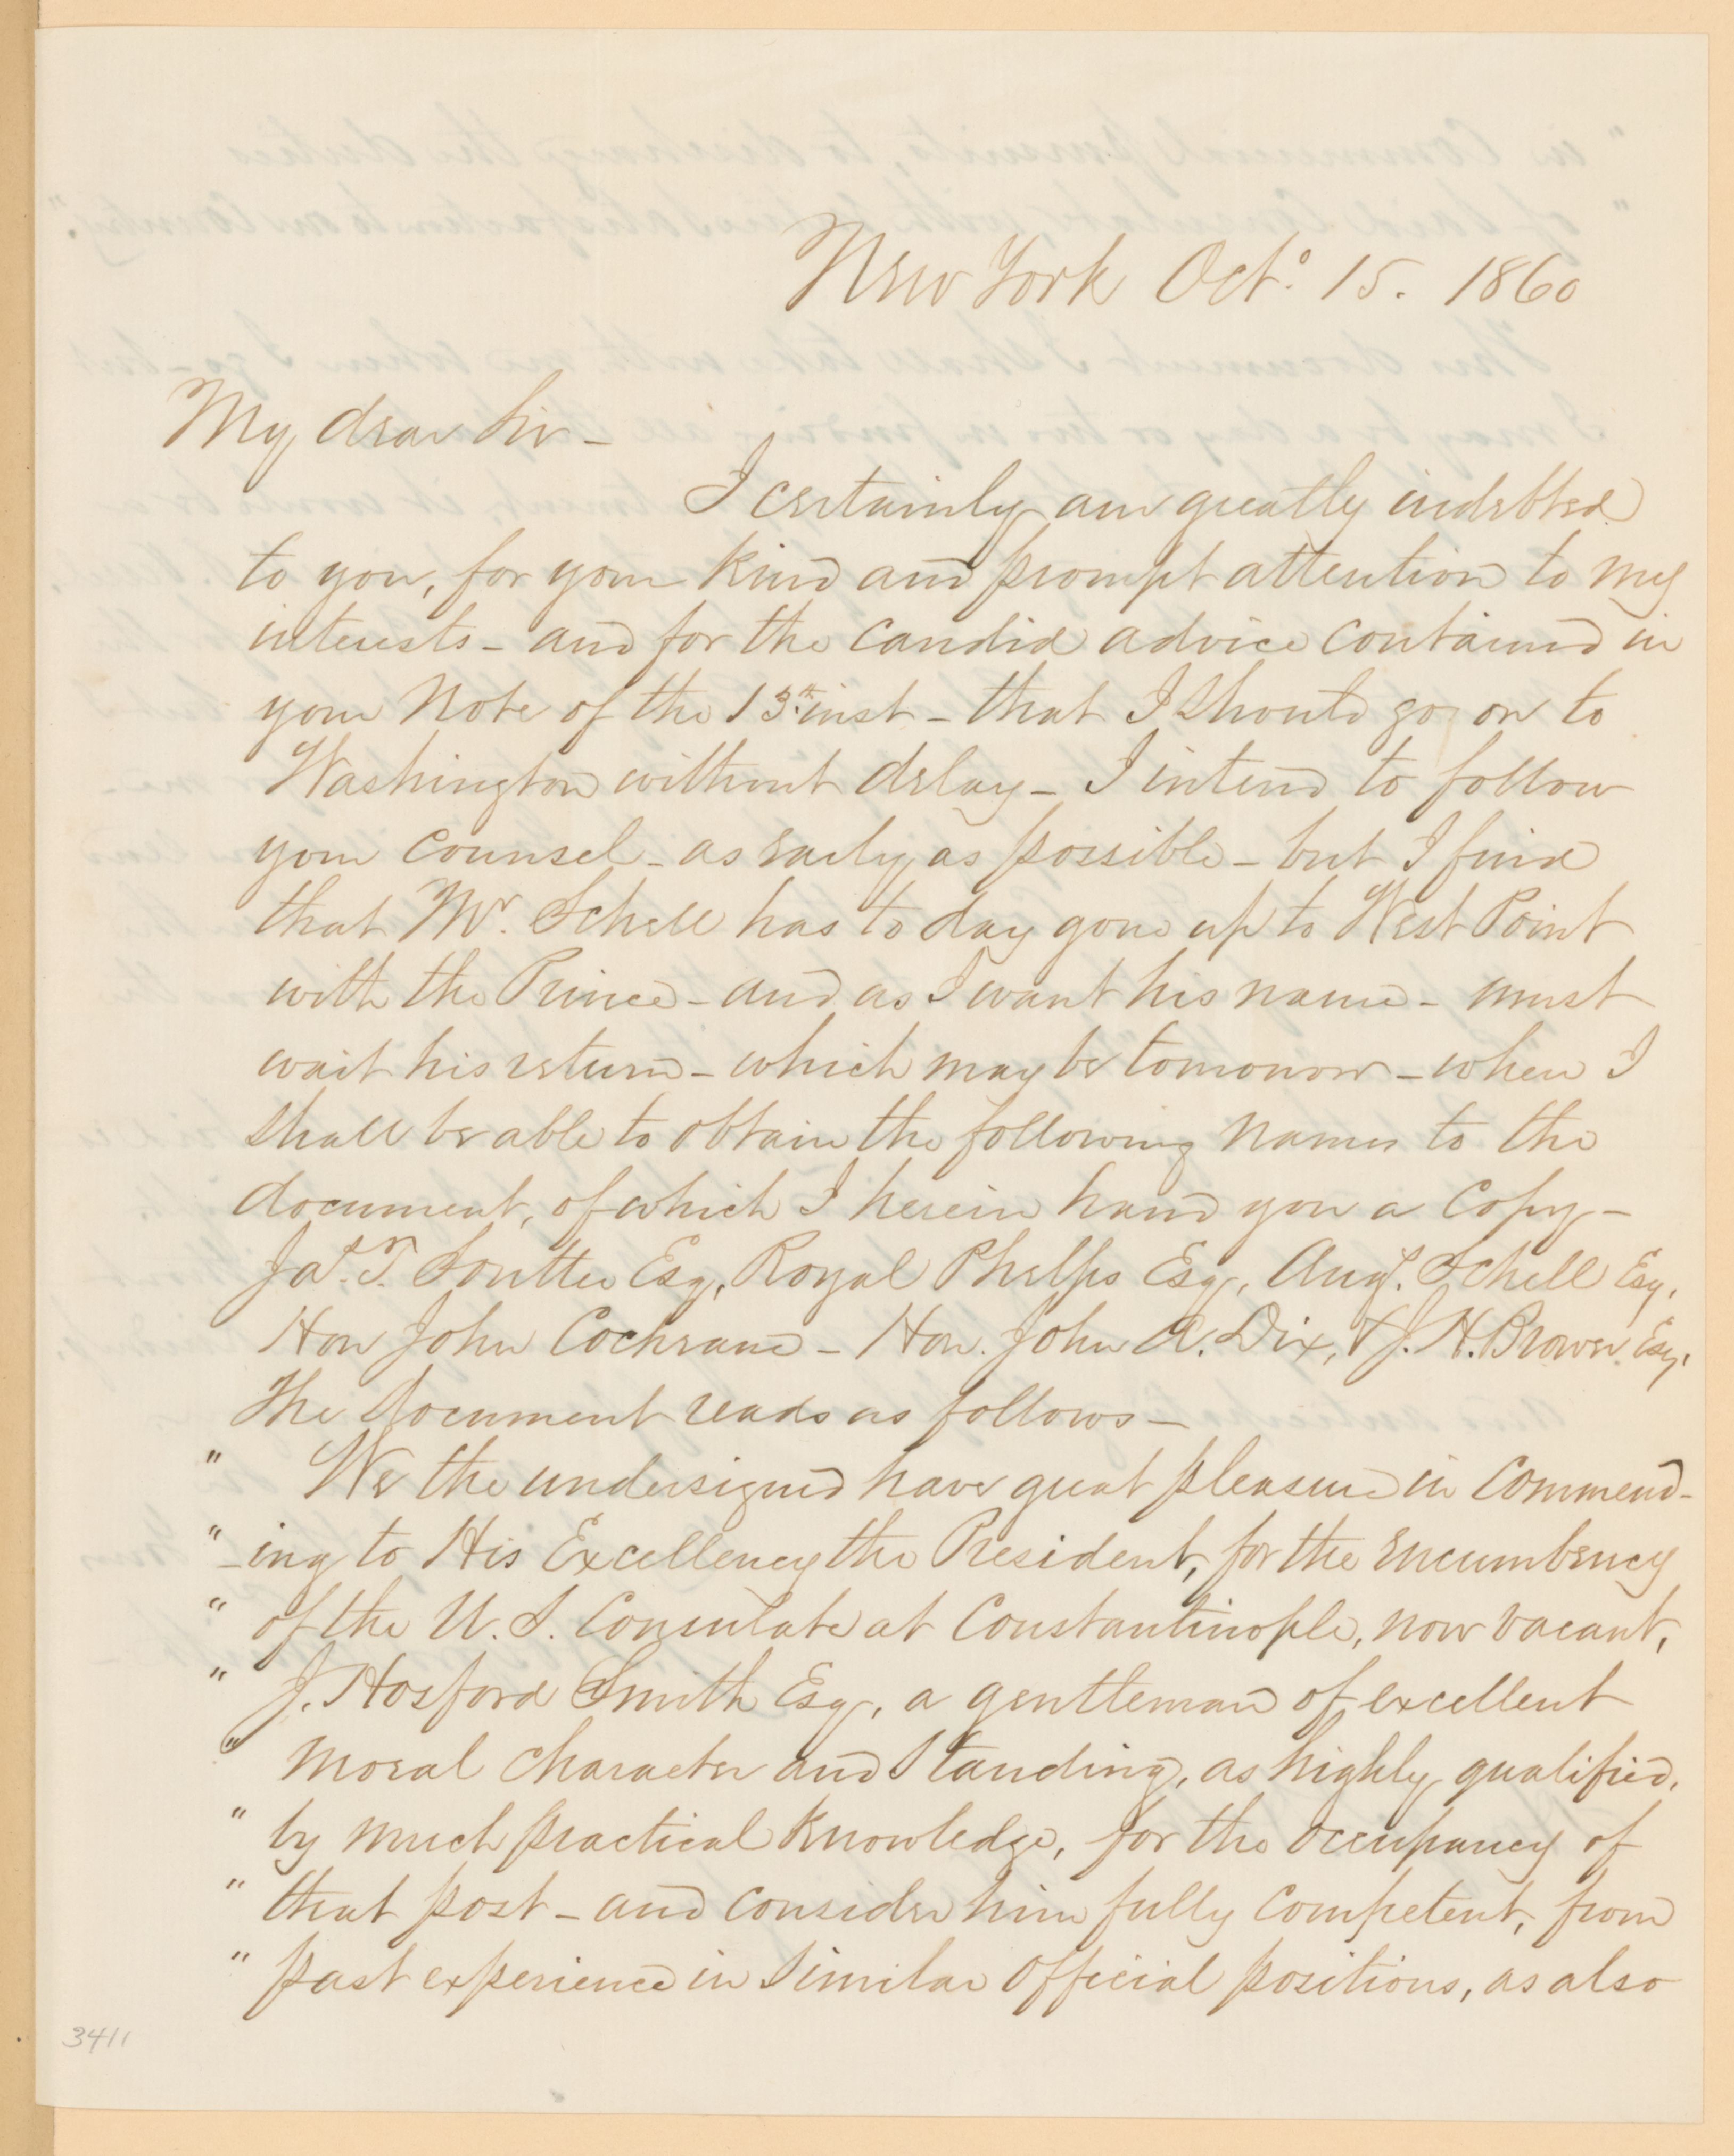 New York Octo. 15. 1860
My dear Sir -
I certainly am greatly indebted
to you, for your kind and prompt attention to my
interests - and for the candid advice contained in
your Note of the 13th inst - that I should go on to
Washington without delay - I intend to follow
your counsel - as early as possible - but I find
that Mr. Schell has to day gone up to West Point
with the Prince - and as I want his name - must
wait his return - which may be tomorrow - when I
shall be able to obtain the following names to the
document, of which I herein hand you a Copy -
Jas. T. Soutter Esq, Royal Phelps Esq, Augs. Schell Esq,
Hon John Cochrane - Hon. John A. Dix, & J. H. Brower Esq,
The document reads as follows -
" We the undersigned have great pleasure in commend-
" -ing to His Excellency the President, for the encumbency
" of the U. S. Consulate at Constantinople, now vacant,
" J. Hosford Smith Esq, a gentleman of excellent
" moral character and standing, as highly qualified,
" by much practical knowledge, for the occupancy of
" that post - and consider him fully competent, from
" past experience in similar official positions, as also
3411